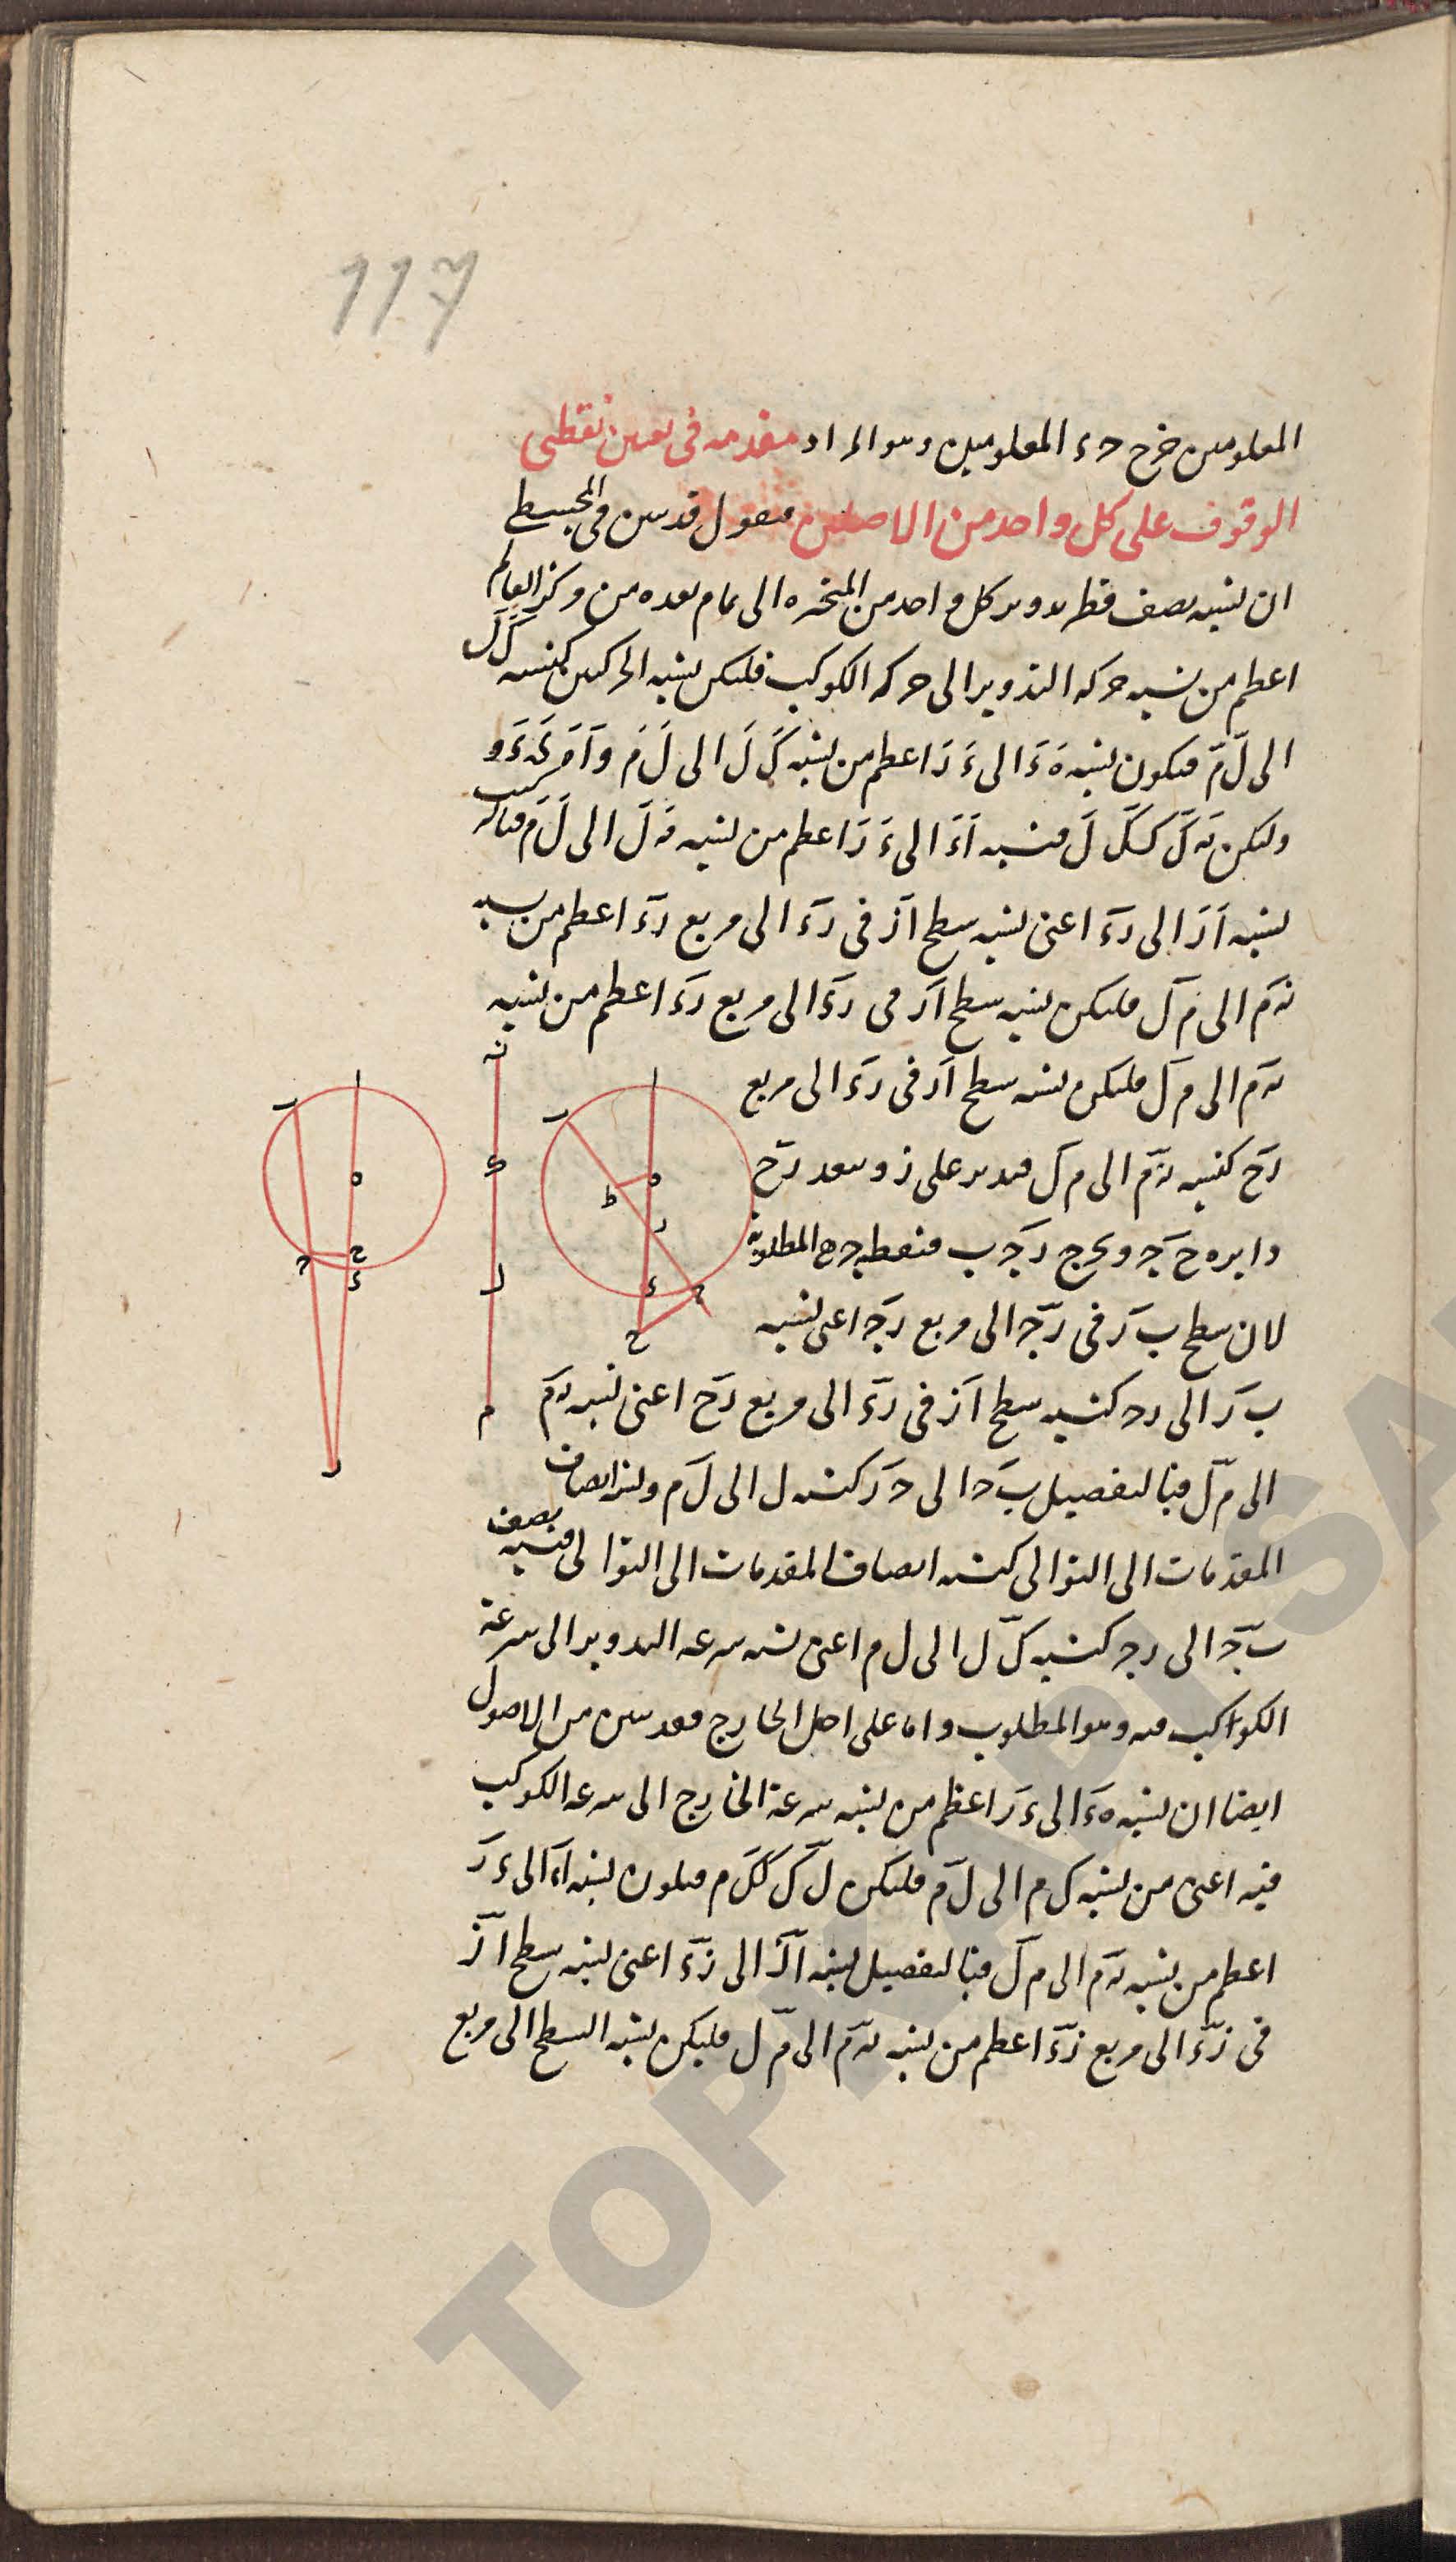 117
المعلومىن خرج حء المعلومين وهو المراد مقدمه فى تعىىن نقطتى
الوقوف على كل واحد من الاصلىن فىقول قد تبىن فى المجسطى
ان نسبه نصف قطر تدوىر كل واحد من المتحىره الى تمام بعده من مركز العالم
اعظم من نسبه حركه التدوير الى حركه الكوكب فلىكن نسبه الحركتىن كنسبه كَ لَ
الى لَ مَ فىكون نسبه هَ ءَ الى ءَ زَ اعظم من نسبه كَ لَ الى لَ مَ
ولىكن نَ كَ كـكَ لَ فنسبه اَ ءَ الى ءَ زَ اعظم من نسبه نَ لَ الى لَ مَ
نسبه اَ زَ الى زَ ءَ اعنى نسبه سطح اَ ز فى زَ ءَ الى مربع زَ ءَ اعظم من نسبه
نَ مَ الى مَ لَ فلىكن نسبه سطح اَ زَ فى زَ ءَ الى مربع زَ ءَ اعظم من نسبه
نَ مَ الى مَ لَ فلىكن نسبه سطح اَ زَ فى زَ ءَ الى مربع
زَ حَ كنسبه نَ مَ الى مَ لَ فندىر على ز وببعد زَ حَ
دايره حَ جَ ونخرج زَ جَ بَ فنقطه جَ هى المطلوبه
لان سطح بَ زَ فى زَ جَ الى مربع زَ جَ اعنى نسبه
بَ زَ الى زجَ كنسبه سطح اَ ز فى زَ ءَ الى مربع زَ حَ اعنى نسبه نَ مَ
الى مَ لَ فبالتفصيل بَ جَ الى جَ زَ كنسبه ل الى لَ مَ ونسبه انصاف
المقدمات الى التوالى كنسبه انصاف المقدمات الى التوالى فنسبه نصف
بَ جَ الى زجَ كنسبه كَ لَ الى ل م اعنى نسبه سرعه التدوير الى سرعة
الكوكب فىه وهو المطلوب واما على اصل الخارج فقد تبىن من الاصول
ايضا ان نسبه هَ ءَ الى ءَ زَ اعظم من نسبه سرعة الخارج الى سرعه الكوكب
فيه اعنى من نسبه ك م الى لَ مَ فلىكن نَ كَ كـكَ م فىكون نسبه اَ ءَ الى ءَ زَ
اعظم من نسبه نَ مَ الى مَ لَ فبالتفصيل نسبه اَ زَ الى زَ ءَ اعنى نسبه سطح اَ زَ
فى زَ ءَ الى مربع زَ ءَ اعظم من نسبه نَ مَ الى مَ ل فليكن نسبه السطح الى مربع
TOPKAPI SA